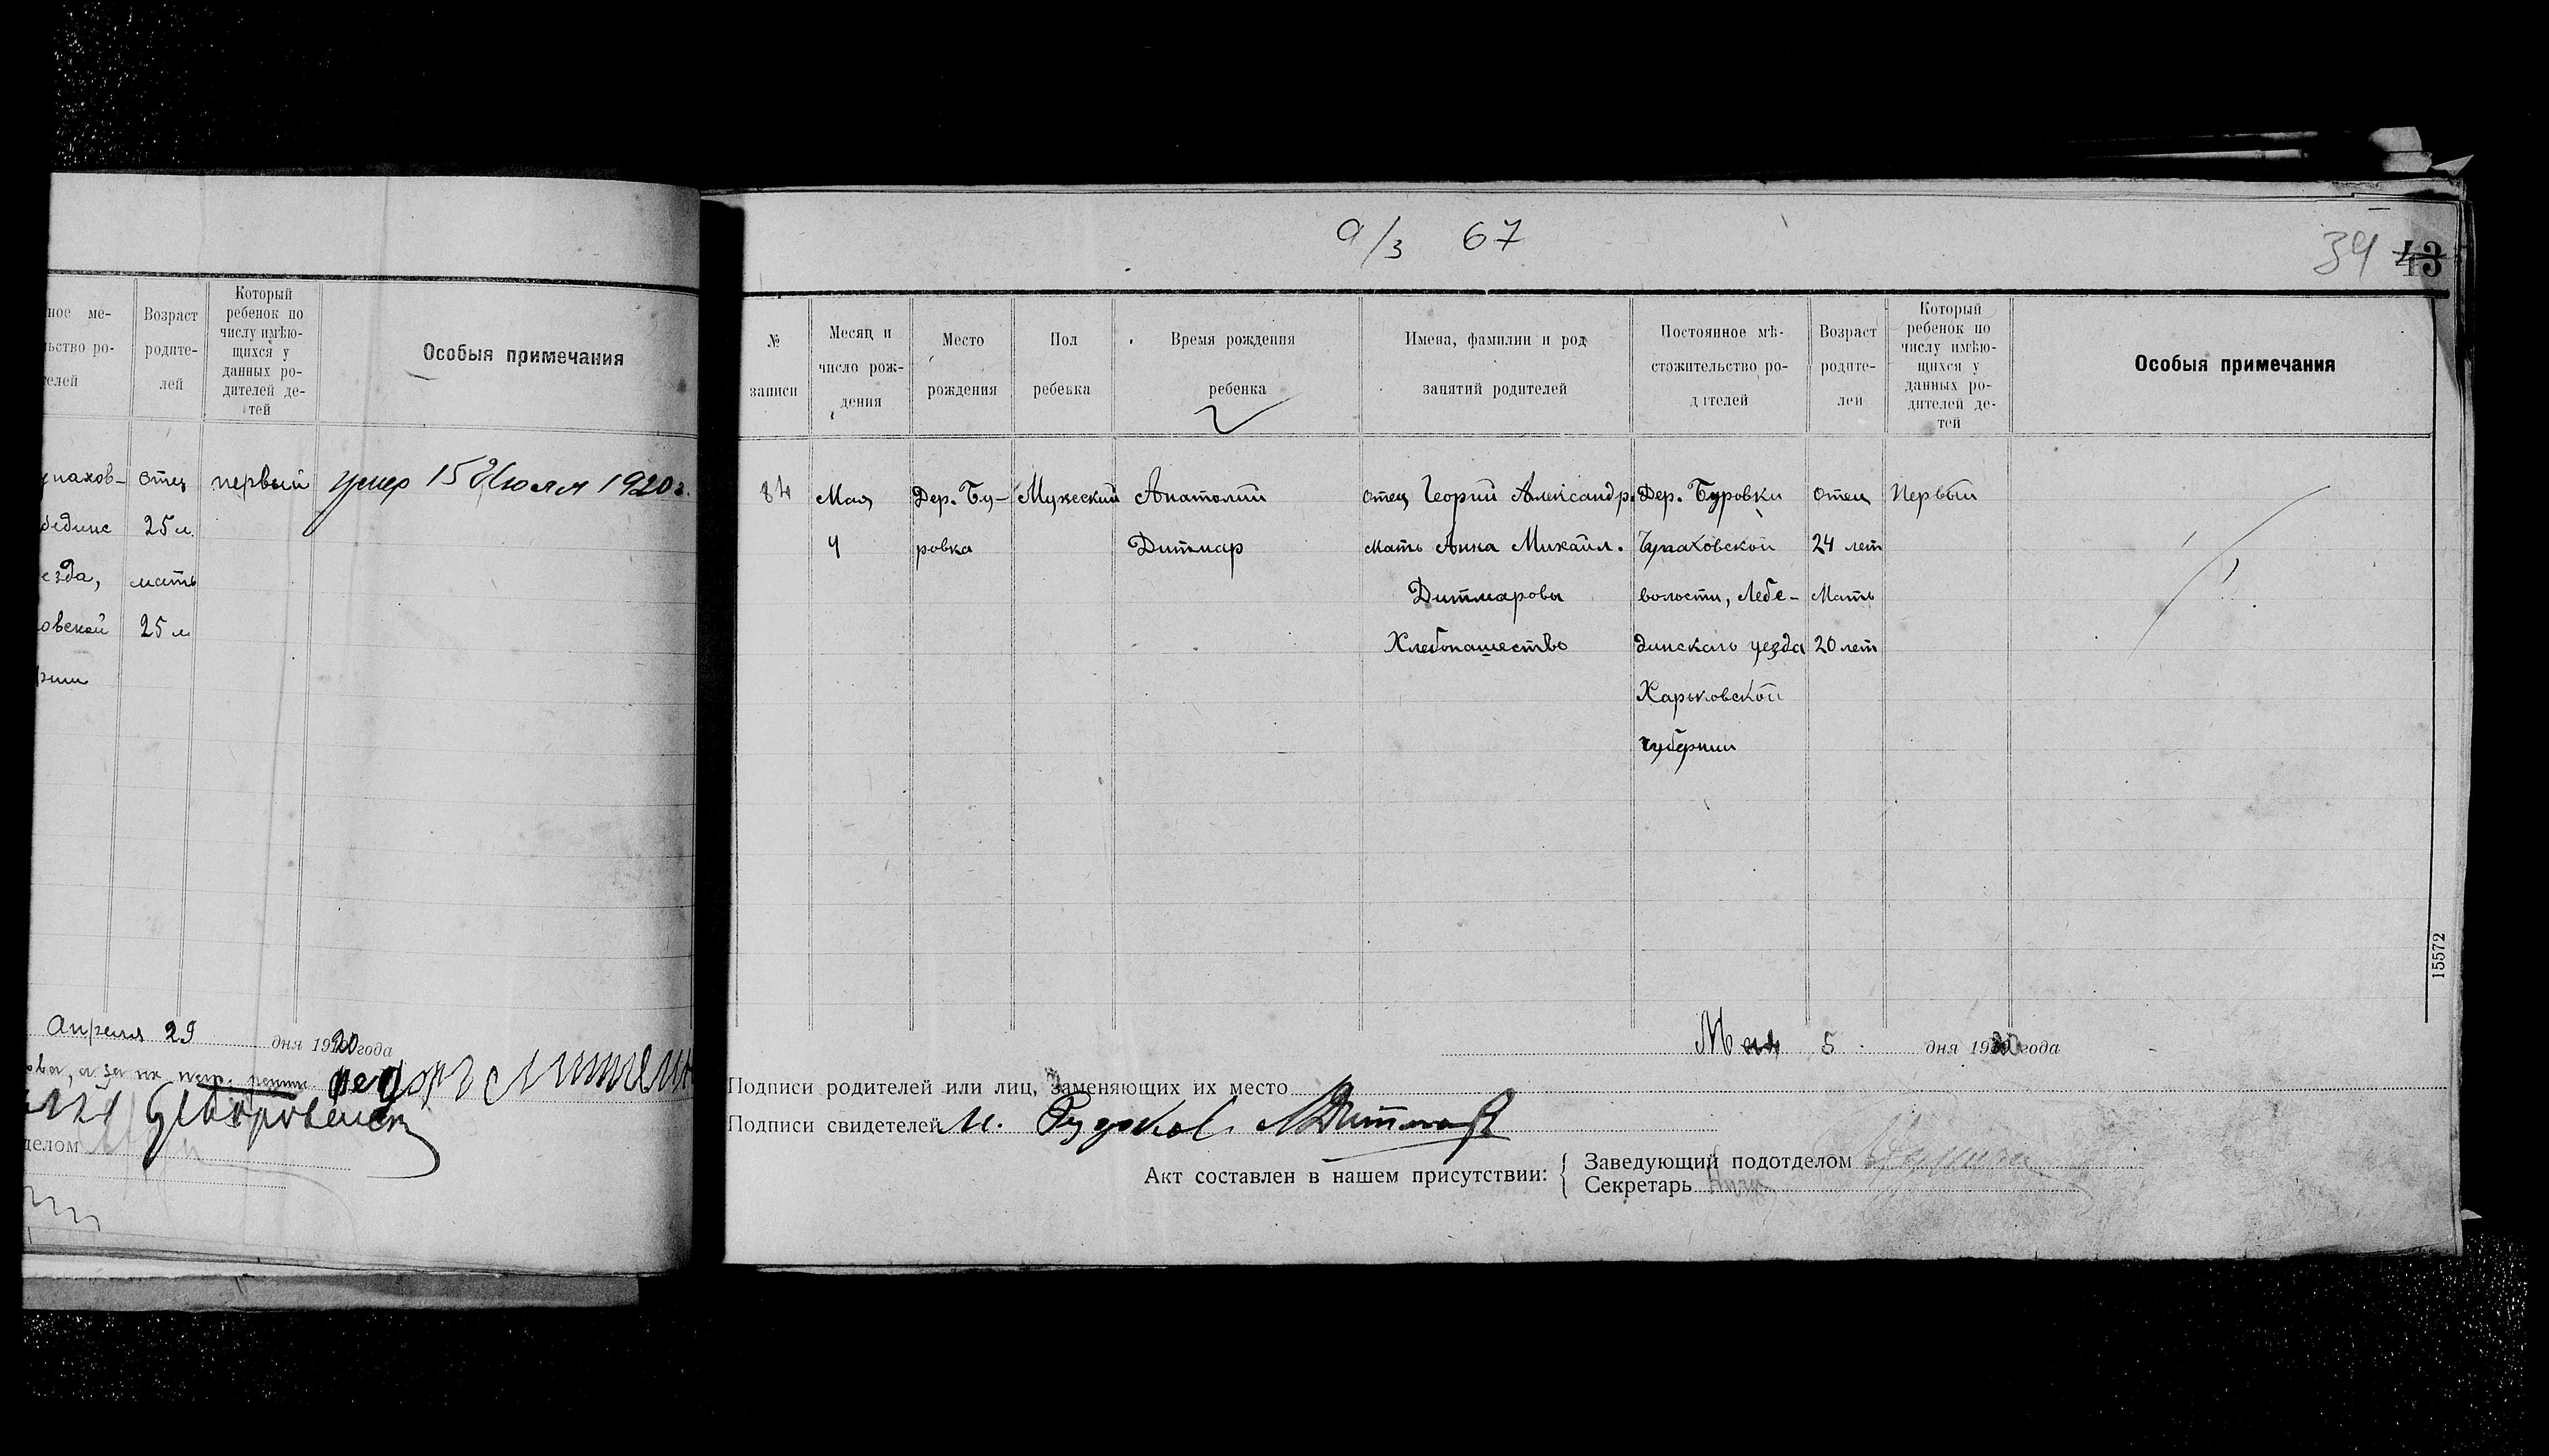 ное ме-
ьство ро-
телей
Возраст
родите-
лей
Который
ребенок по
числу имѣю-
щихся у
данных ро-
дителей де-
тей
Особыя примечания
упахов-
бедине
езда,
овской
рнии
отец
25 л.
мать
25 л
первый
умер 15 Июля 1920 г.
Апреля 29 дня 1920 года
делом
а/з 67
34 43
№
записи
Месяц и
число рож-
дения
Место
рождения
Пол
ребенка
Время рождения
ребенка
Имена, фамилии и род
занятий родителей
Постоянное мѣ-
стожительство ро-
дителей
Возраст
родите-
лей
Который
ребенок по
числу имѣю-
щихся у
данных ро-
дителей де-
тей
Особыя примечания
84
Мая
4
Дер. Бу-
ровка
Мужеский
Анатолий
Дитмар
отец Георгий Александр.
мать Анна Михайл.
Дитмаровы
Хлебопашество
Дер. Буровки
Чупаховской
волости, Лебе-
динскаго уезда
Харьковской
губернии
отец
24 лет
Мать
20 лет
Первый
15572
Мая 5 дня 1920 года
Подписи родителей или лиц, заменяющих их место
Подписи свидетелей И. Рудков. Дитмар
Акт составлен в нашем присутствии:
Заведующий подотделом
Секретарь